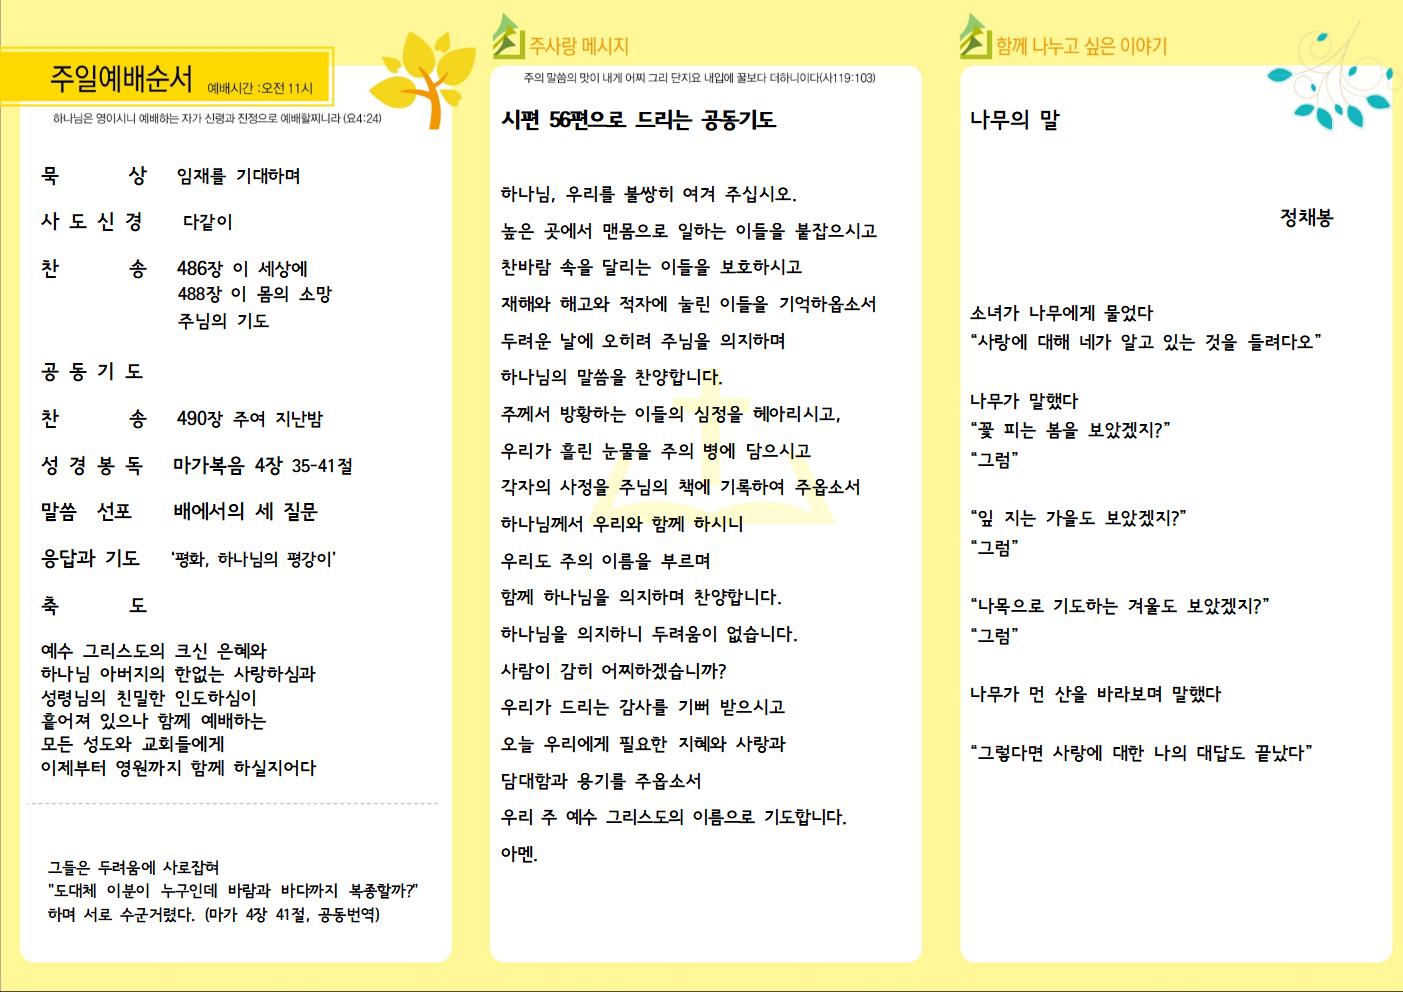 주일예배순서 예배시간 :오전 11시
하나님은 영이시니 예배하는 자가 신령과 진정으로 예배할찌니라 (요4:24)
묵 상 임재를 기대하며
사 도 신 경 다같이
찬 송 486장 이 세상에
488장 이 몸의 소망
주님의 기도
공 동 기 도
찬 송 490장 주여 지난밤
성 경 봉 독 마가복음 4장 35-41절
말씀 선포 배에서의 세 질문
응답과 기도 '평화, 하나님의 평강이'
축 도
예수 그리스도의 크신 은혜와
하나님 아버지의 한없는 사랑하심과
성령님의 친밀한 인도하심이
흩어져 있으나 함께 예배하는
모든 성도와 교회들에게
이제부터 영원까지 함께 하실지어다
그들은 두려움에 사로잡혀
"도대체 이분이 누구인데 바람과 바다까지 복종할까?"
하며 서로 수군거렸다. (마가 4장 41절, 공동번역)
주사랑 메시지
주의 말씀의 맛이 내게 어찌 그리 단지요 내입에 꿀보다 더하니이다(시119:103)
시편 56편으로 드리는 공동기도
하나님, 우리를 불쌍히 여겨 주십시오.
높은 곳에서 맨몸으로 일하는 이들을 붙잡으시고
찬바람 속을 달리는 이들을 보호하시고
재해와 해고와 적자에 눌린 이들을 기억하옵소서
두려운 날에 오히려 주님을 의지하며
하나님의 말씀을 찬양합니다.
주께서 방황하는 이들의 심정을 헤아리시고,
우리가 흘린 눈물을 주의 병에 담으시고
각자의 사정을 주님의 책에 기록하여 주옵소서
하나님께서 우리와 함께 하시니
우리도 주의 이름을 부르며
함께 하나님을 의지하며 찬양합니다.
하나님을 의지하니 두려움이 없습니다.
사람이 감히 어찌하겠습니까?
우리가 드리는 감사를 기뻐 받으시고
오늘 우리에게 필요한 지혜와 사랑과
담대함과 용기를 주옵소서
우리 주 예수 그리스도의 이름으로 기도합니다.
아멘.
함께 나누고 싶은 이야기
나무의 말
정채봉
소녀가 나무에게 물었다
“사랑에 대해 네가 알고 있는 것을 들려다오”
나무가 말했다
“꽃 피는 봄을 보았겠지?”
“그럼”
“잎 지는 가을도 보았겠지?”
“그럼”
“나목으로 기도하는 겨울도 보았겠지?”
“그럼”
나무가 먼 산을 바라보며 말했다
“그렇다면 사랑에 대한 나의 대답도 끝났다”